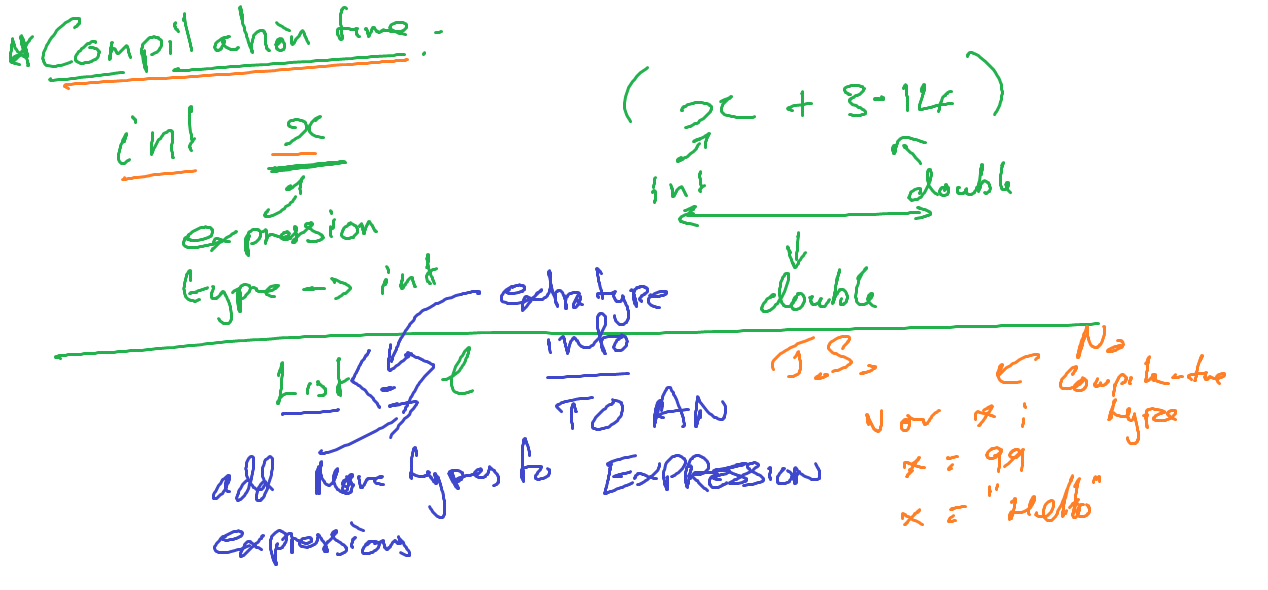 * Compilation time.
int x
expression
type -> int
( x + 3.14 )
int double
double
List < - > l
extra type
info
TO AN
EXPRESSION
add More types to
expressions
J.S.
No
Compile-time
type
var x ;
x = 99
x = "Hello"